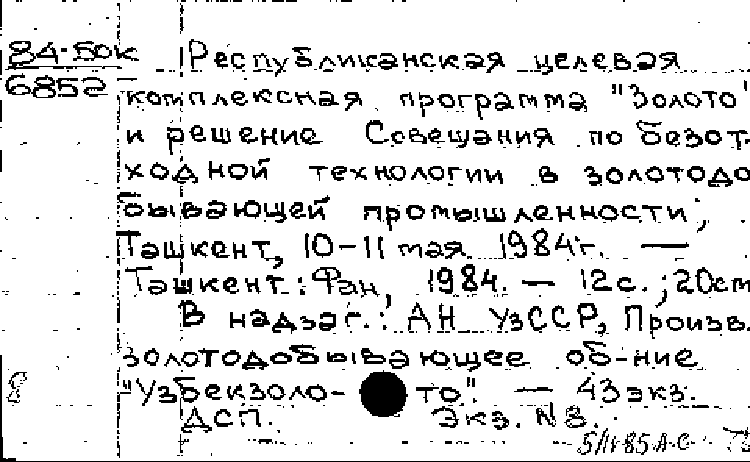 84-50к
6852
Республиканская целевая
комплексная программа "Золото"
и решение Совещания по безот-
ходной технологии в золотодо
бывающей промышленности,
Ташкент, 10-11 мая 1984г. —
Ташкент: Фан, 1984. — 12с.; 20cm
В надзаг.: АН УзССР, Произв.
золотодобывающее об-ние
8 "Узбекзоло-то". — 43экз.
ДСП. Экз. N 8.